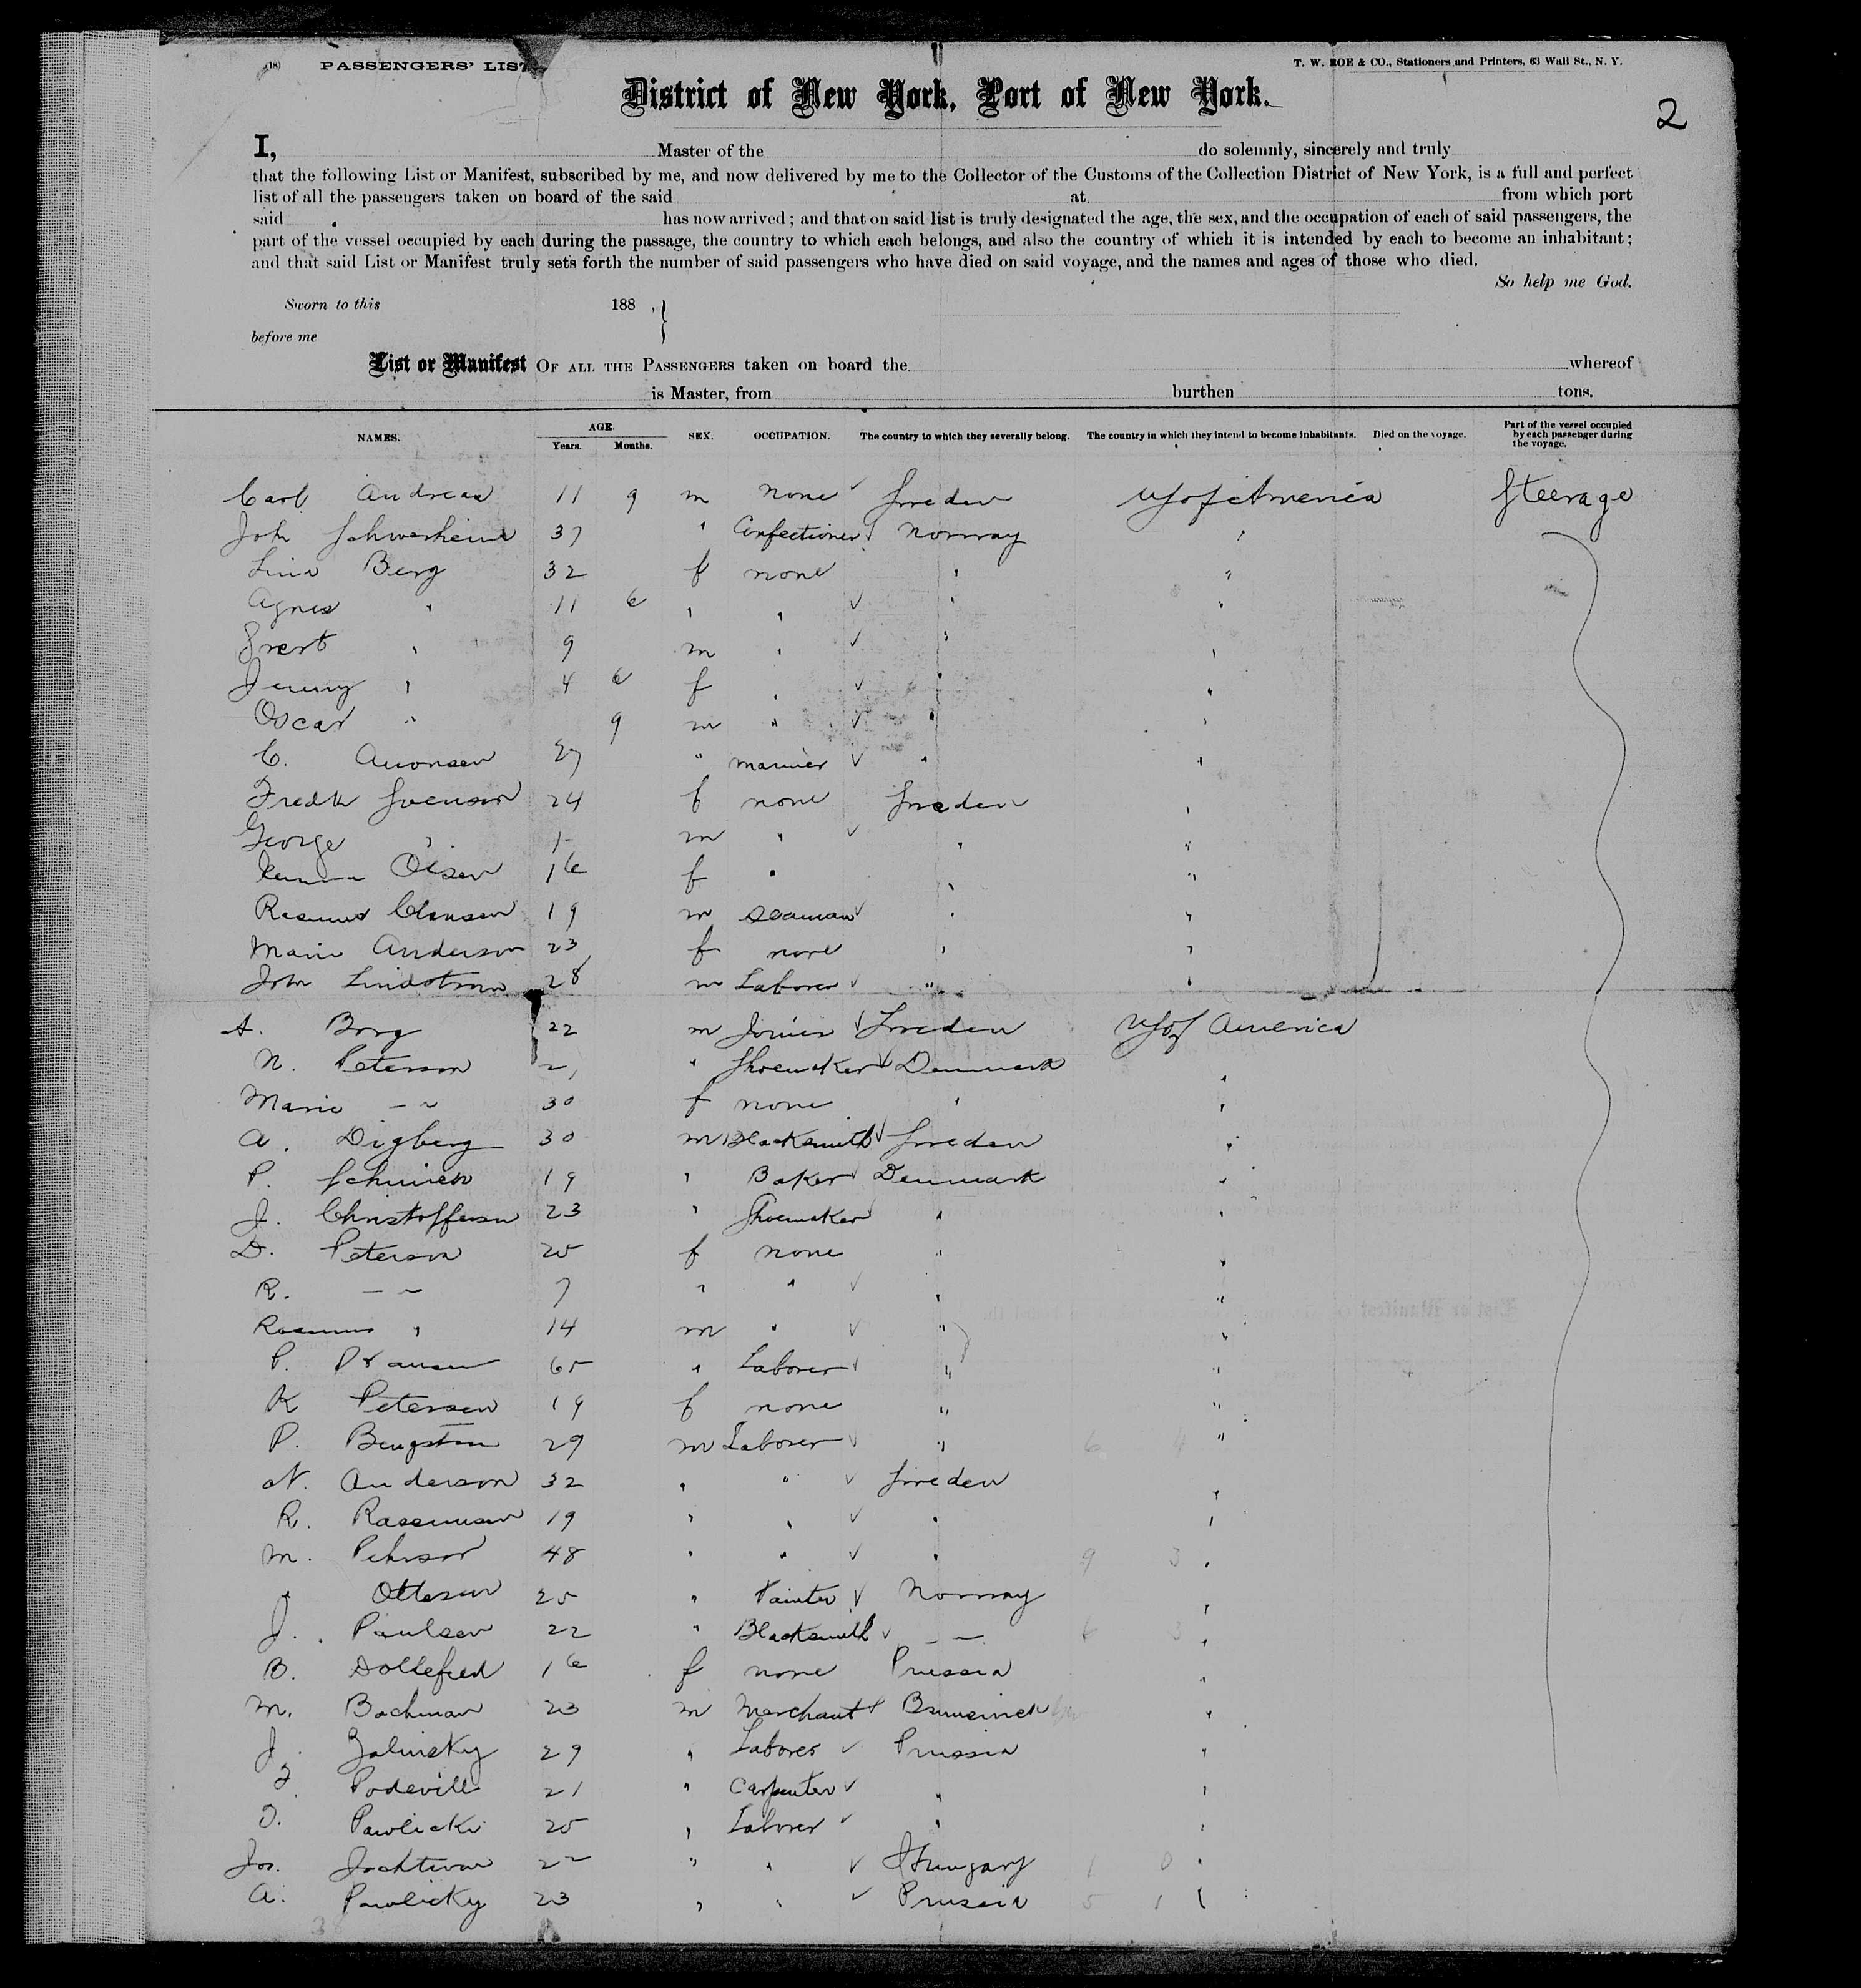 (18) PASSENGERS' LIST
T. W. ROE & CO., Stationers and Printers, 63 Wall St., N. Y.
District of New York, Port of New York.
2
I, Master of the do solemnly, sincerely and truly
that the following List or Manifest, subscribed by me, and now delivered by me to the Collector of the Customs of the Collection District of New York, is a full and perfect
list of all the passengers taken on board of the said at from which port
said has now arrived; and that on said list is truly designated the age, the sex, and the occupation of each of said passengers, the
part of the vessel occupied by each during the passage, the country to which each belongs, and also the country of which it is intended by each to become an inhabitant;
and that said List or Manifest truly sets forth the number of said passengers who have died on said voyage, and the names and ages of those who died.
So help me God.
Sworn to this 188 , }
before me
List or Manifest OF ALL THE PASSENGERS taken on board the whereof
is Master, from burthen tons.
NAMES. AGE. Years. Months. SEX. OCCUPATION. The country to which they severally belong. The country in which they intend to become inhabitants. Died on the voyage. Part of the vessel occupied by each passenger during the voyage.
Carl Andreas 11 9 m none ✓ Sweden US of America Steerage
John 37 " Confectioner ✓ Norway "
Lina Berg 32 f none " "
Agnes " 11 6 " " ✓ " "
" 9 m " ✓ " "
Jenny " 4 6 f " ✓ " "
Oscar " 9 m " ✓ " "
C. Aronsen 27 " mariner ✓ " "
Fredk Svenson 24 f none Sweden "
George " 1 m " ✓ " "
Emma Olsen 16 f " " "
Rasmus Clausen 19 m seaman ✓ " "
Marie Anderson 23 f none " "
John Lindstrom 28 m Laborer ✓ " "
A. Borg 22 m Joiner ✓ Sweden US of America
N. Peterson " Shoemaker ✓ Denmark "
Marie — ~ 30 f none " "
A. Digberg 30 m Blacksmith ✓ Sweden "
P. 19 " Baker ✓ Denmark "
J. Christoffersen 23 " Shoemaker " "
D. Peterson 25 f none " "
R. — ~ 7 " " ✓ " "
Rasmus " 14 m " ✓ " "
P. 65 " Laborer ✓ " "
K Petersen 19 f none " "
P. Bengston 29 m Laborer ✓ " 6 4 "
N. Anderson 32 " " ✓ Sweden "
R. Rasmussen 19 " " ✓ " "
M. Pehrson 48 " " ✓ " 9 3 "
J Ottesen 25 " Painter ✓ Norway "
J. Paulsen 22 " Blacksmith ✓ — — 6 3 "
B. Dollefeed 16 f none Prussia "
M. Bachman 23 m Merchant ✓ Brunswick "
J. Zalinsky 29 " Laborer ✓ Prussia "
J. Podevill 21 " Carpenter ✓ " "
J. Pawlicki 25 " Laborer ✓ " "
Jos. 22 " " ✓ Hungary 1 0 "
A. Pawlicky 23 " " ✓ Prussia 5 1 "